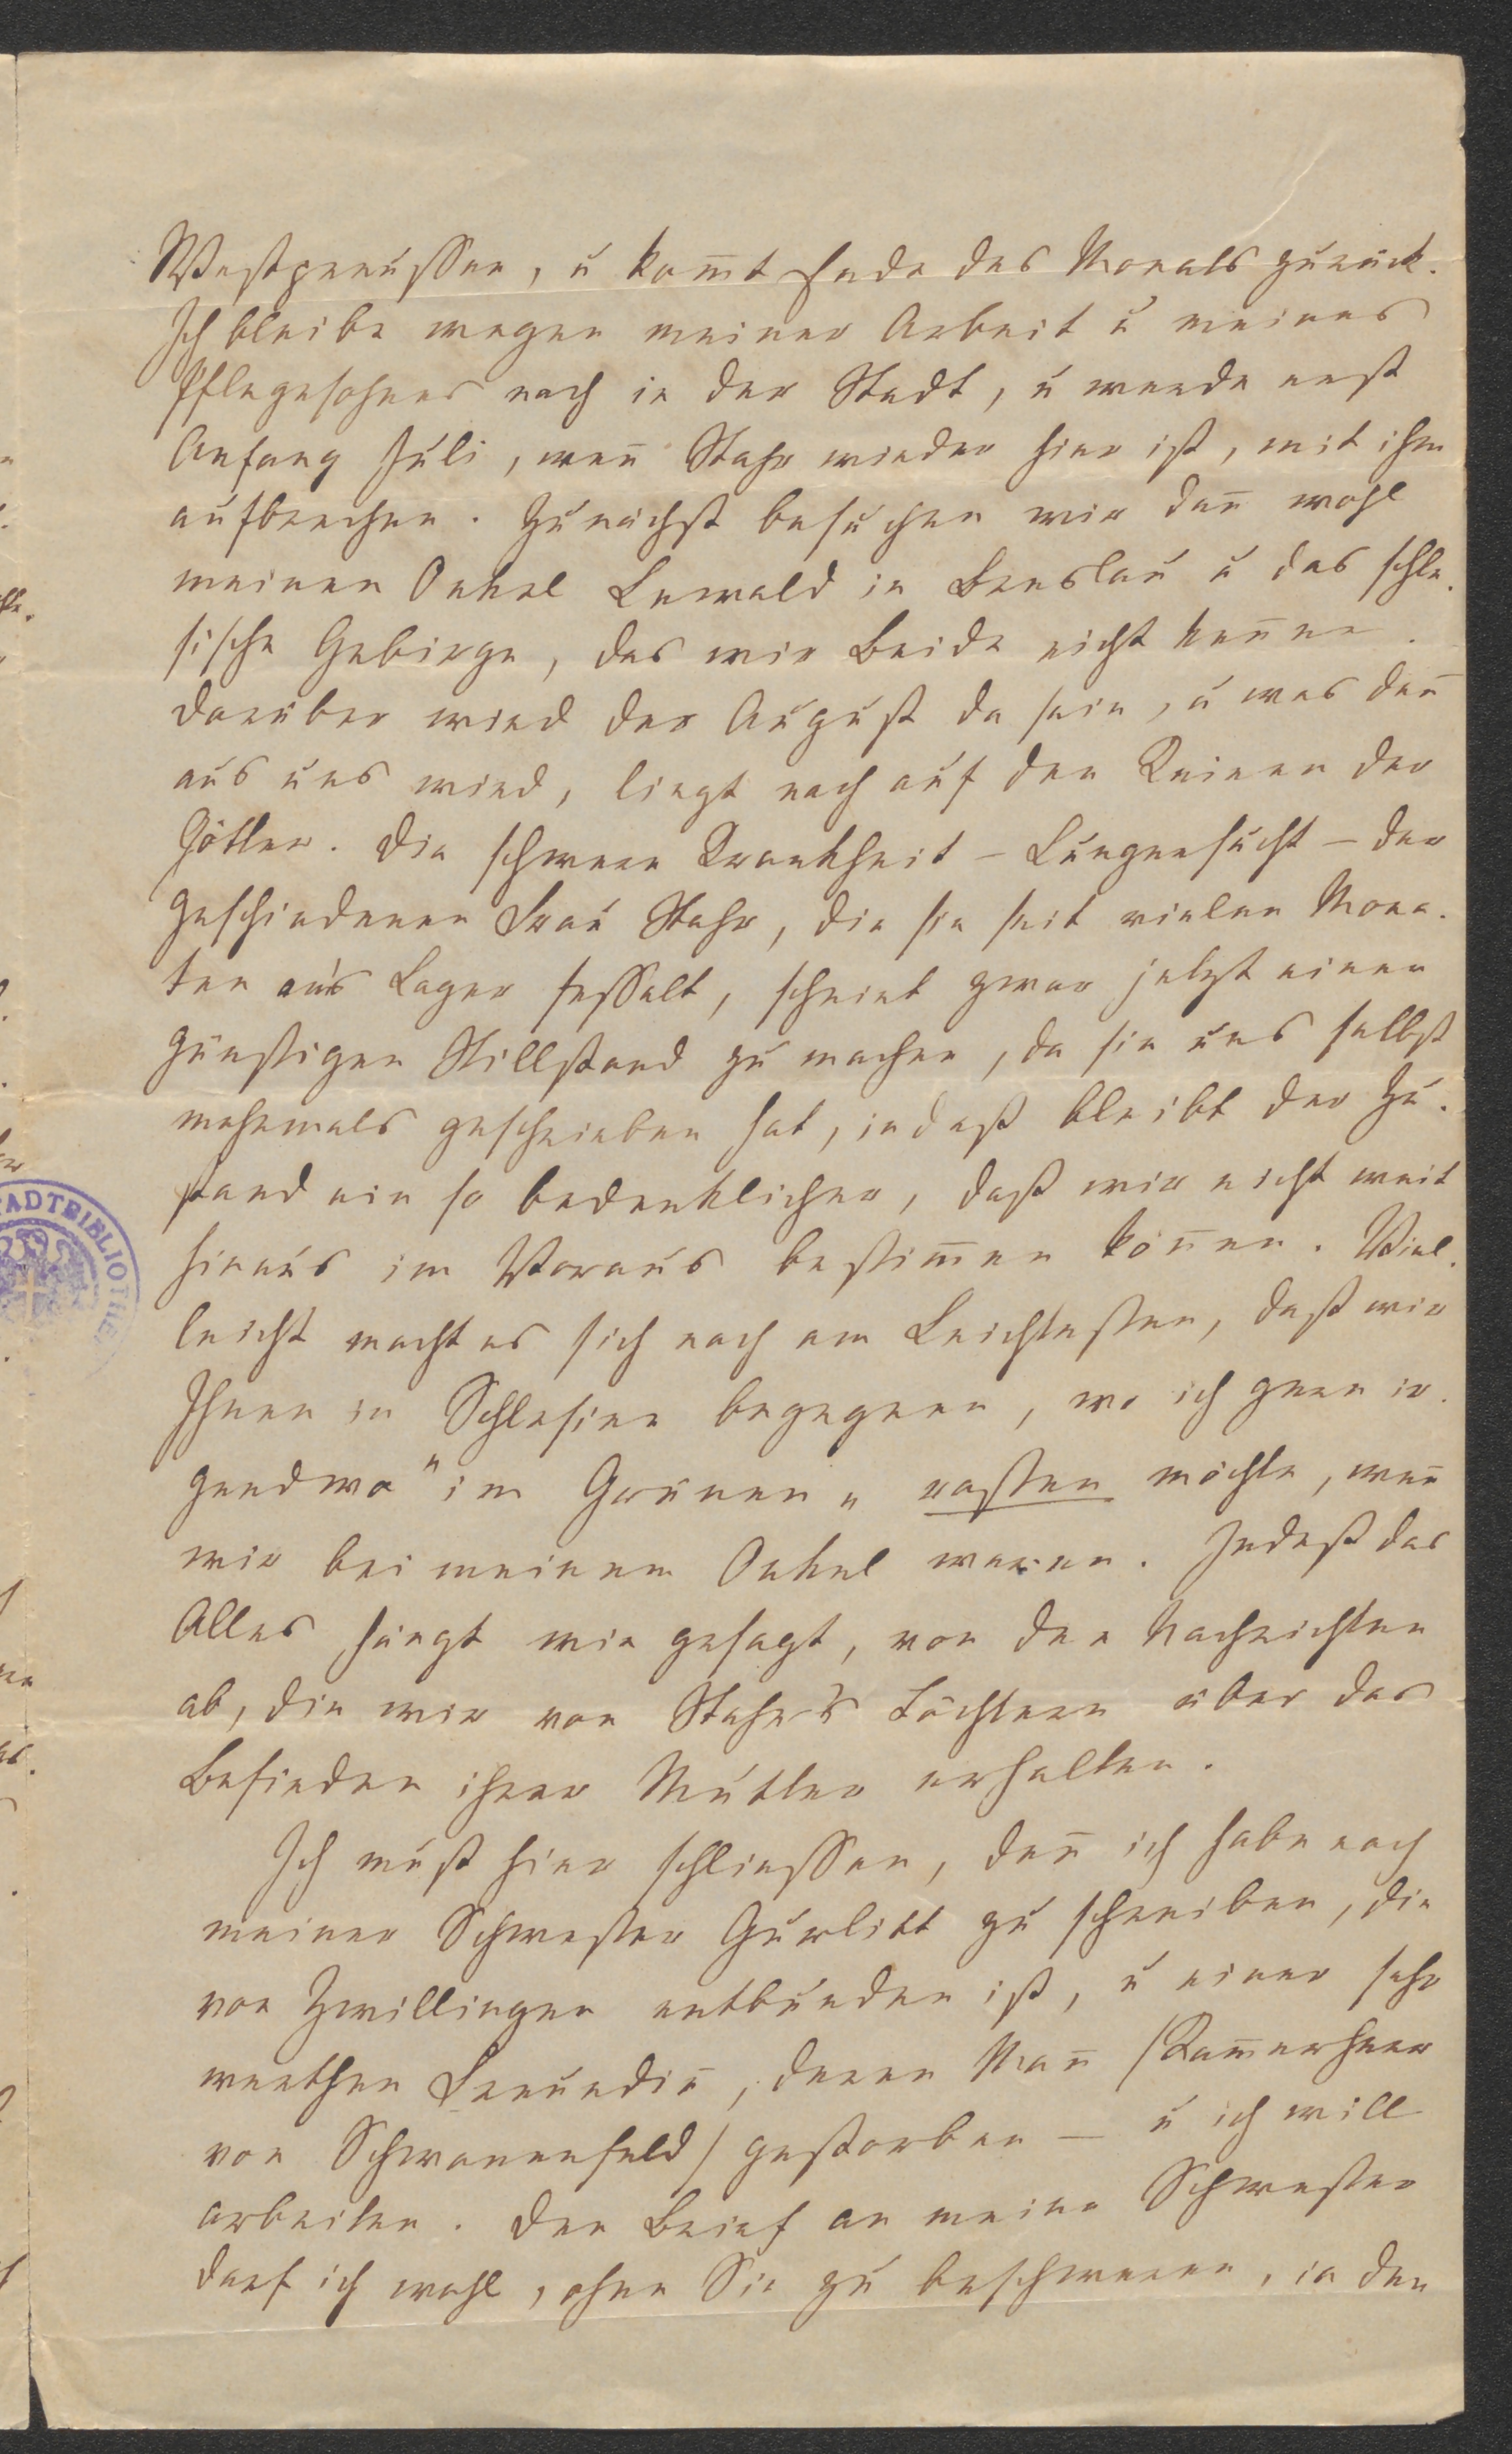 Westpreussen, u kom̄t Ende des Monats zurück.
Ich bleibe wegen meiner Arbeit u meines
Pflegesohnes noch in der Stadt, u werde erst
Anfang Juli, wen̄ Stahr wieder hier ist, mit ihm
aufbrechen. Zunächst besuchen wir dan̄ wohl
meinen Onkel Lewald in Breslau u das schle-
sische Gebirge, das wir Beide nicht ken̄en.
Darüber wird der August da sein, u was dan̄
aus uns wird, liegt noch auf den Knieen der
Götter. Die schwere Krankheit – Lungensucht – der
geschiedenen Frau Stahr, die sie seit vielen Mona-
ten an's Lager fesselt, scheint zwar jetzt einen
günstigen Stillstand zu machen, da sie uns selbst
mehrmals geschrieben hat, indeß bleibt der Zu-
stand ein so bedenklicher, daß wir nicht weit
hinaus im Voraus bestim̄en kön̄en. Viel-
leicht macht es sich noch am Leichtesten, daß wir
Ihnen in Schlesien begegnen, wo ich gern ir-
gendwo "im Grünen" rasten möchte, wen̄
wir bei meinem Onkel waren. Indeß das
Alles hängt wie gesagt, von den Nachrichten
ab, die wir von Stahr's Töchtern über das
Befinden ihrer Mutter erhalten.
Ich muß hier schliessen, den̄ ich habe noch
meiner Schwester Gurlitt zu schreiben, die
von Zwillingen entbunden ist, u einer sehr
werthen Freundin̄, deren Man̄ /Kam̄erherr
von Schwanenfeld/ gestorben – u ich will
arbeiten. Den Brief an meine Schwester
darf ich wohl, ohne Sie zu beschweren, in den
STADTBIBLIOTHEK